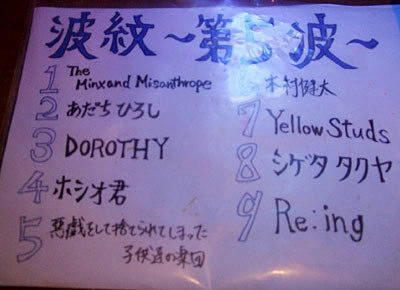 波紋~第5波~
1 The
Minx and Misanthrope
2 あだち ひろし
3 DOROTHY
4 ホシオ君
5 悪戯をして捨てられてしまった
子供達の楽団
6 木村健太
7 Yellow Studs
8 シゲタ タクヤ
9 Re:ing